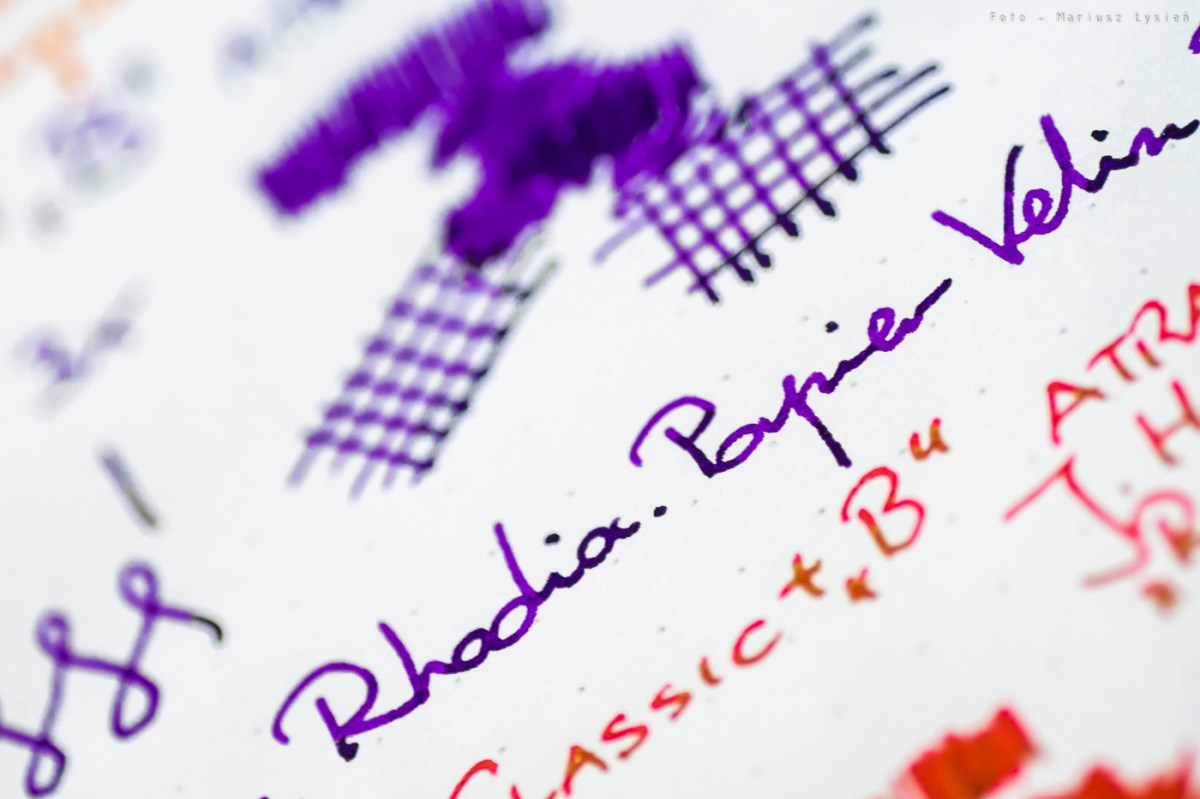 Foto - Mariusz Łysień
Rhodia. Papier Velin
CLASSIC "B"
ATRA